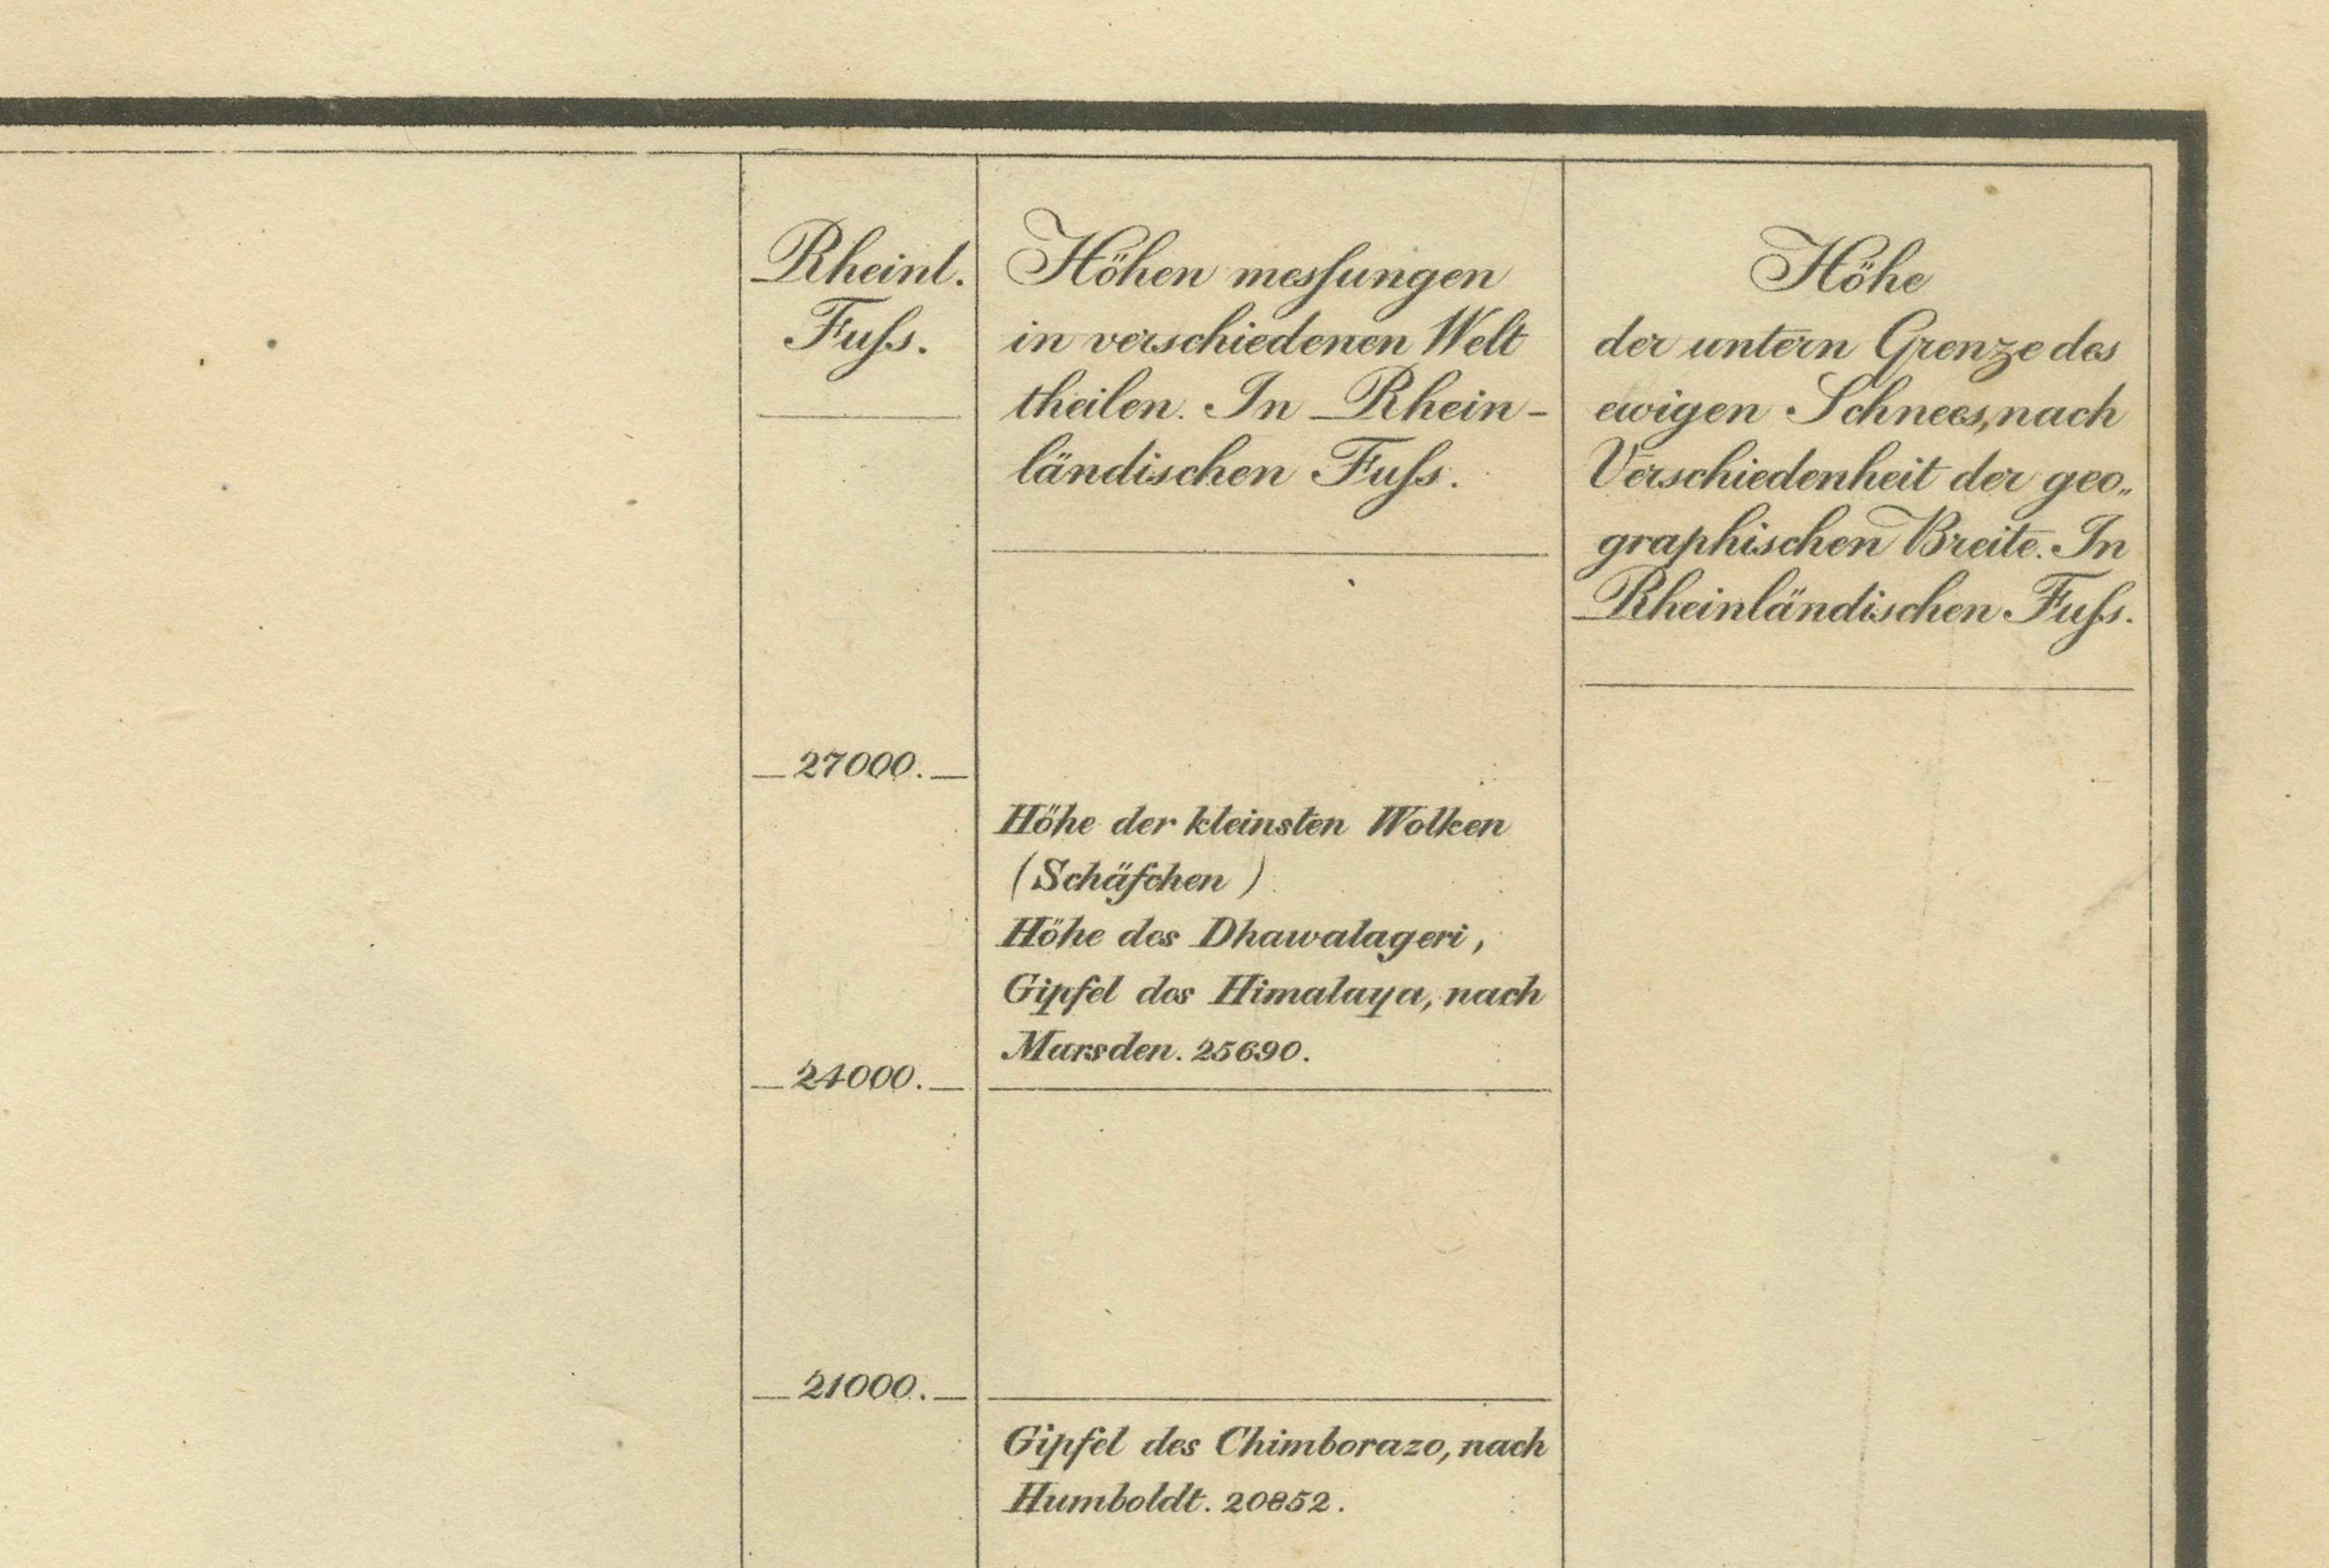 Rheinl.
Fuſs.
27000.
24000.
21000.
Höhen meſsungen
in verschiedenen Welt
theilen. In Rhein-
ländischen Fuſs.
Höhe der kleinsten Wolken
(Schäfchen)
Höhe des Dhawalageri,
Gipfel des Himalaya, nach
Marsden. 25690.
Gipfel des Chimborazo, nach
Humboldt. 20852.
Höhe
der untern Grenze des
ewigen Schnees, nach
Verschiedenheit der geo„
graphischen Breite. In
Rheinländischen Fuſs.